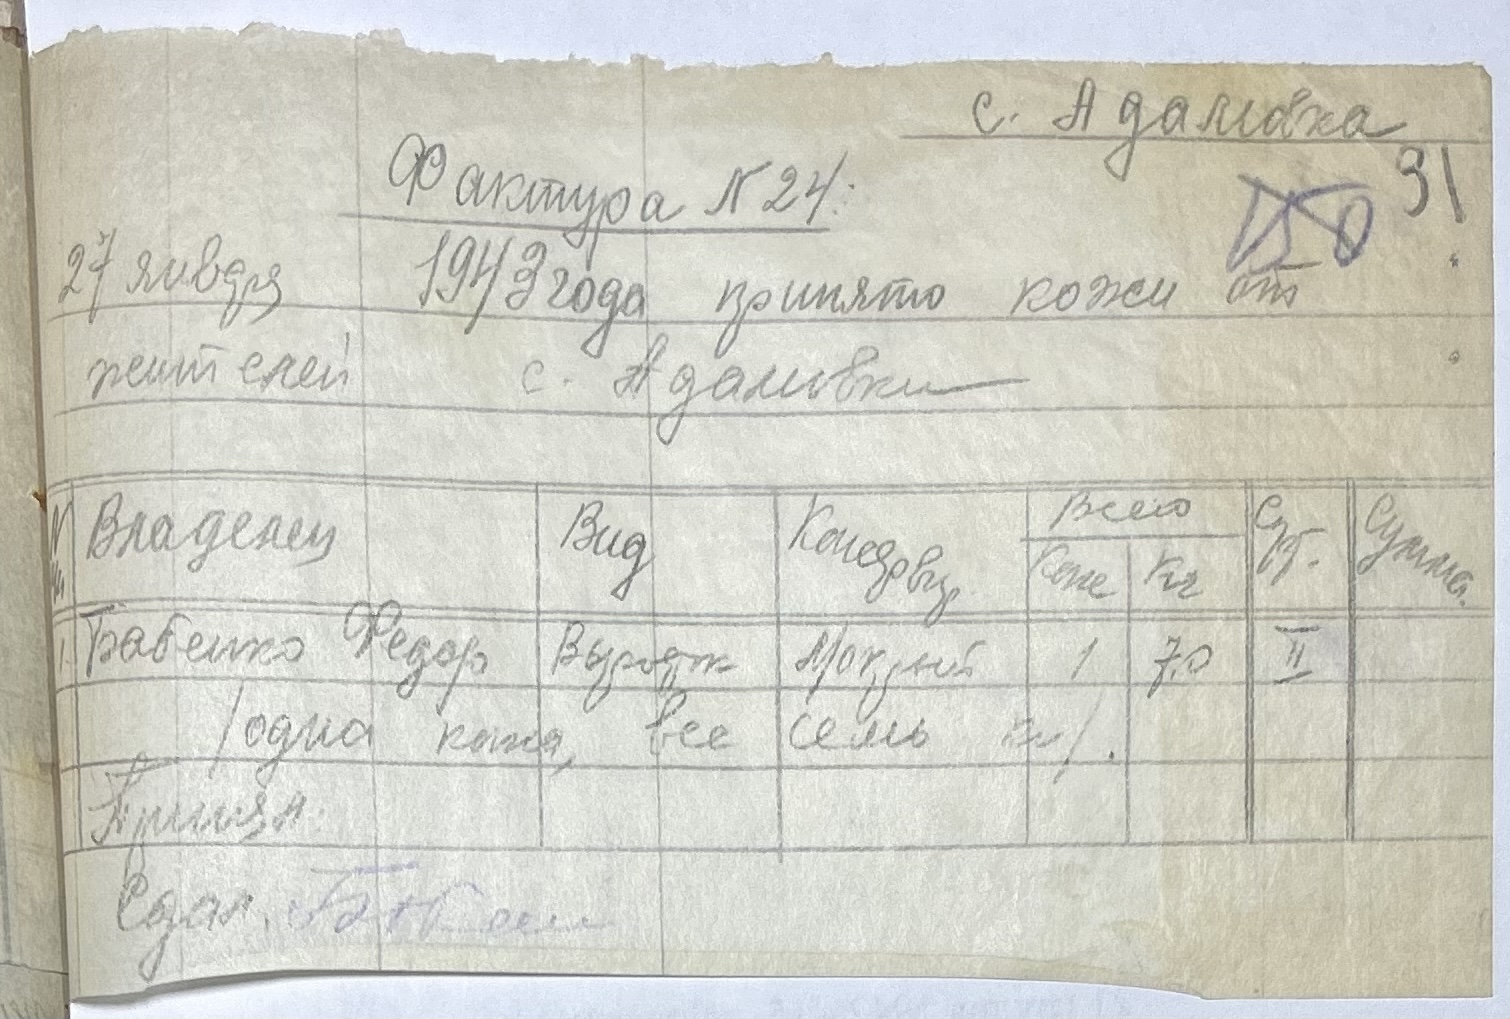 с. Адамовка
31
Фактура N 24.
150
27 января 1943 года принято кожи от
жителей с. Адамовки
N Владелец Вид Консервир. Всего Сорт. Сумма.
Кож Кг
1. Бабенко Федор Вырост Мокрый 1 7,0 II
/одна кожа, все семь кг/.
Принял:
Сдал.